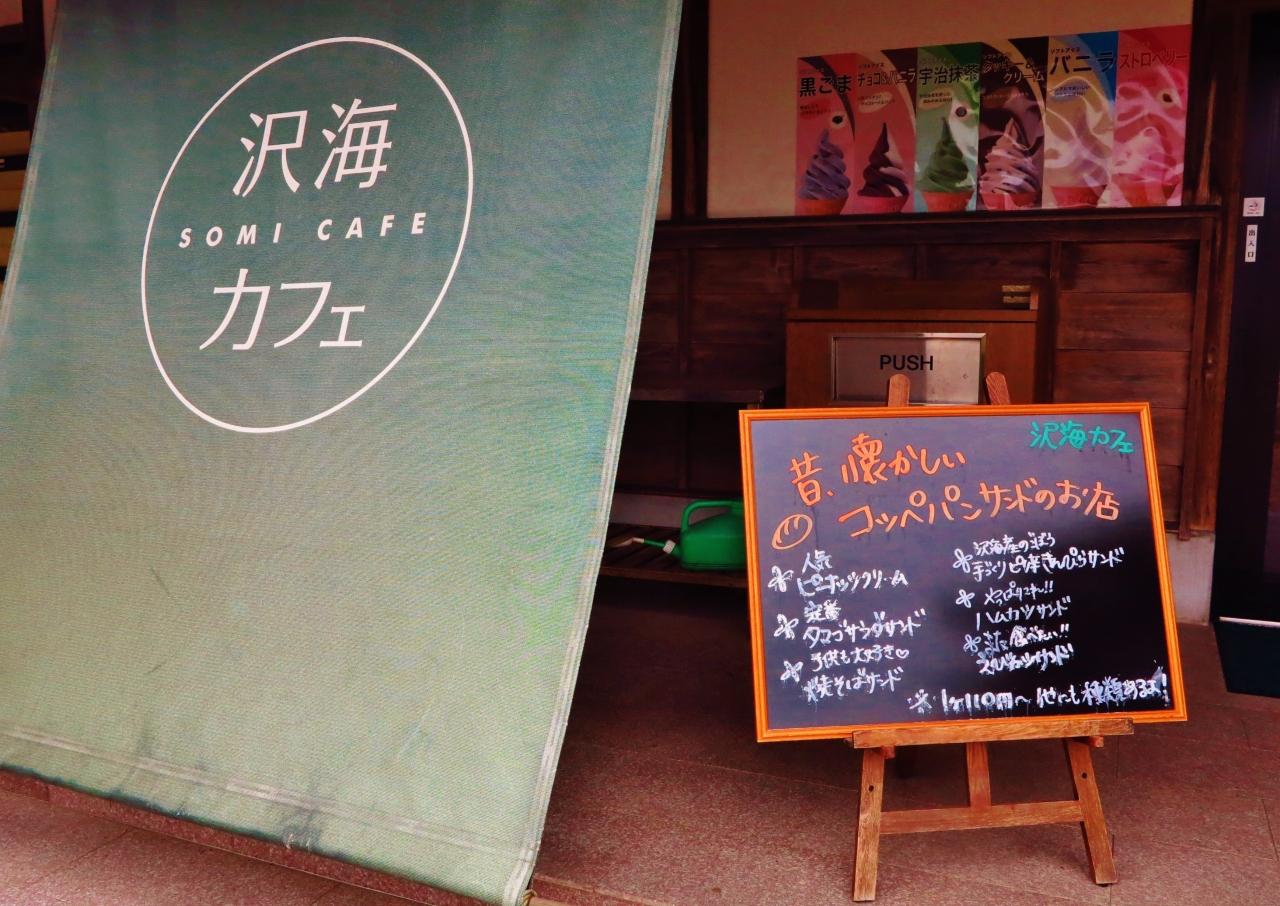 沢海
SOMI CAFE
カフェ
黒ごま
チョコ&バニラ
宇治抹茶
クッキー&
クリーム
バニラ
ストロベリー
出入口
PUSH
沢海カフェ
昔、懐かしい
コッペパンサンドのお店
人気
ピーナッツクリーム
定番
タマゴサラダサンド
子供も大好き♡
焼そばサンド
沢海産のごぼう
手づくりピリ辛きんぴらサンド
やっぱりコレ!!
ハムカツサンド
また食べたい!!
えびカツサンド
※1ケ110円〜 他にも種類あるよ!